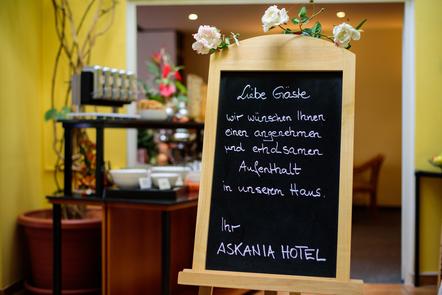 Liebe Gäste
wir wünschen Ihnen
einen angenehmen
und erholsamen
Aufenthalt
in unserem Haus.
Ihr
ASKANIA HOTEL